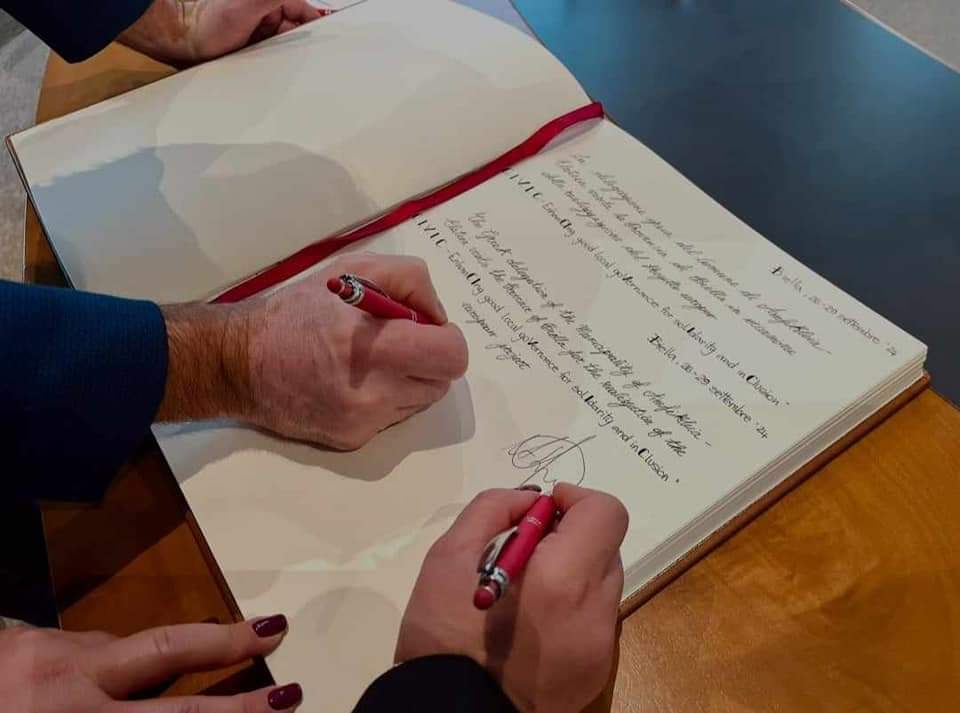 Biella, 26-29 settembre '24
La delegazione greca del Comune di Amfikleia-
Elateia visita la Provincia di Biella in occasione
della realizzazione del progetto europeo
CIVIC - EnhanCIng good local goVernance for solIdarity and inClusion"
Biella, 26-29 settembre '24
The Greek delegation of the Municipality of Amfikleia-
Elateia visits the Province of Biella for the realization of the
european project
CIVIC - EnhanCIng good local goVernance for solIdarity and inClusion"